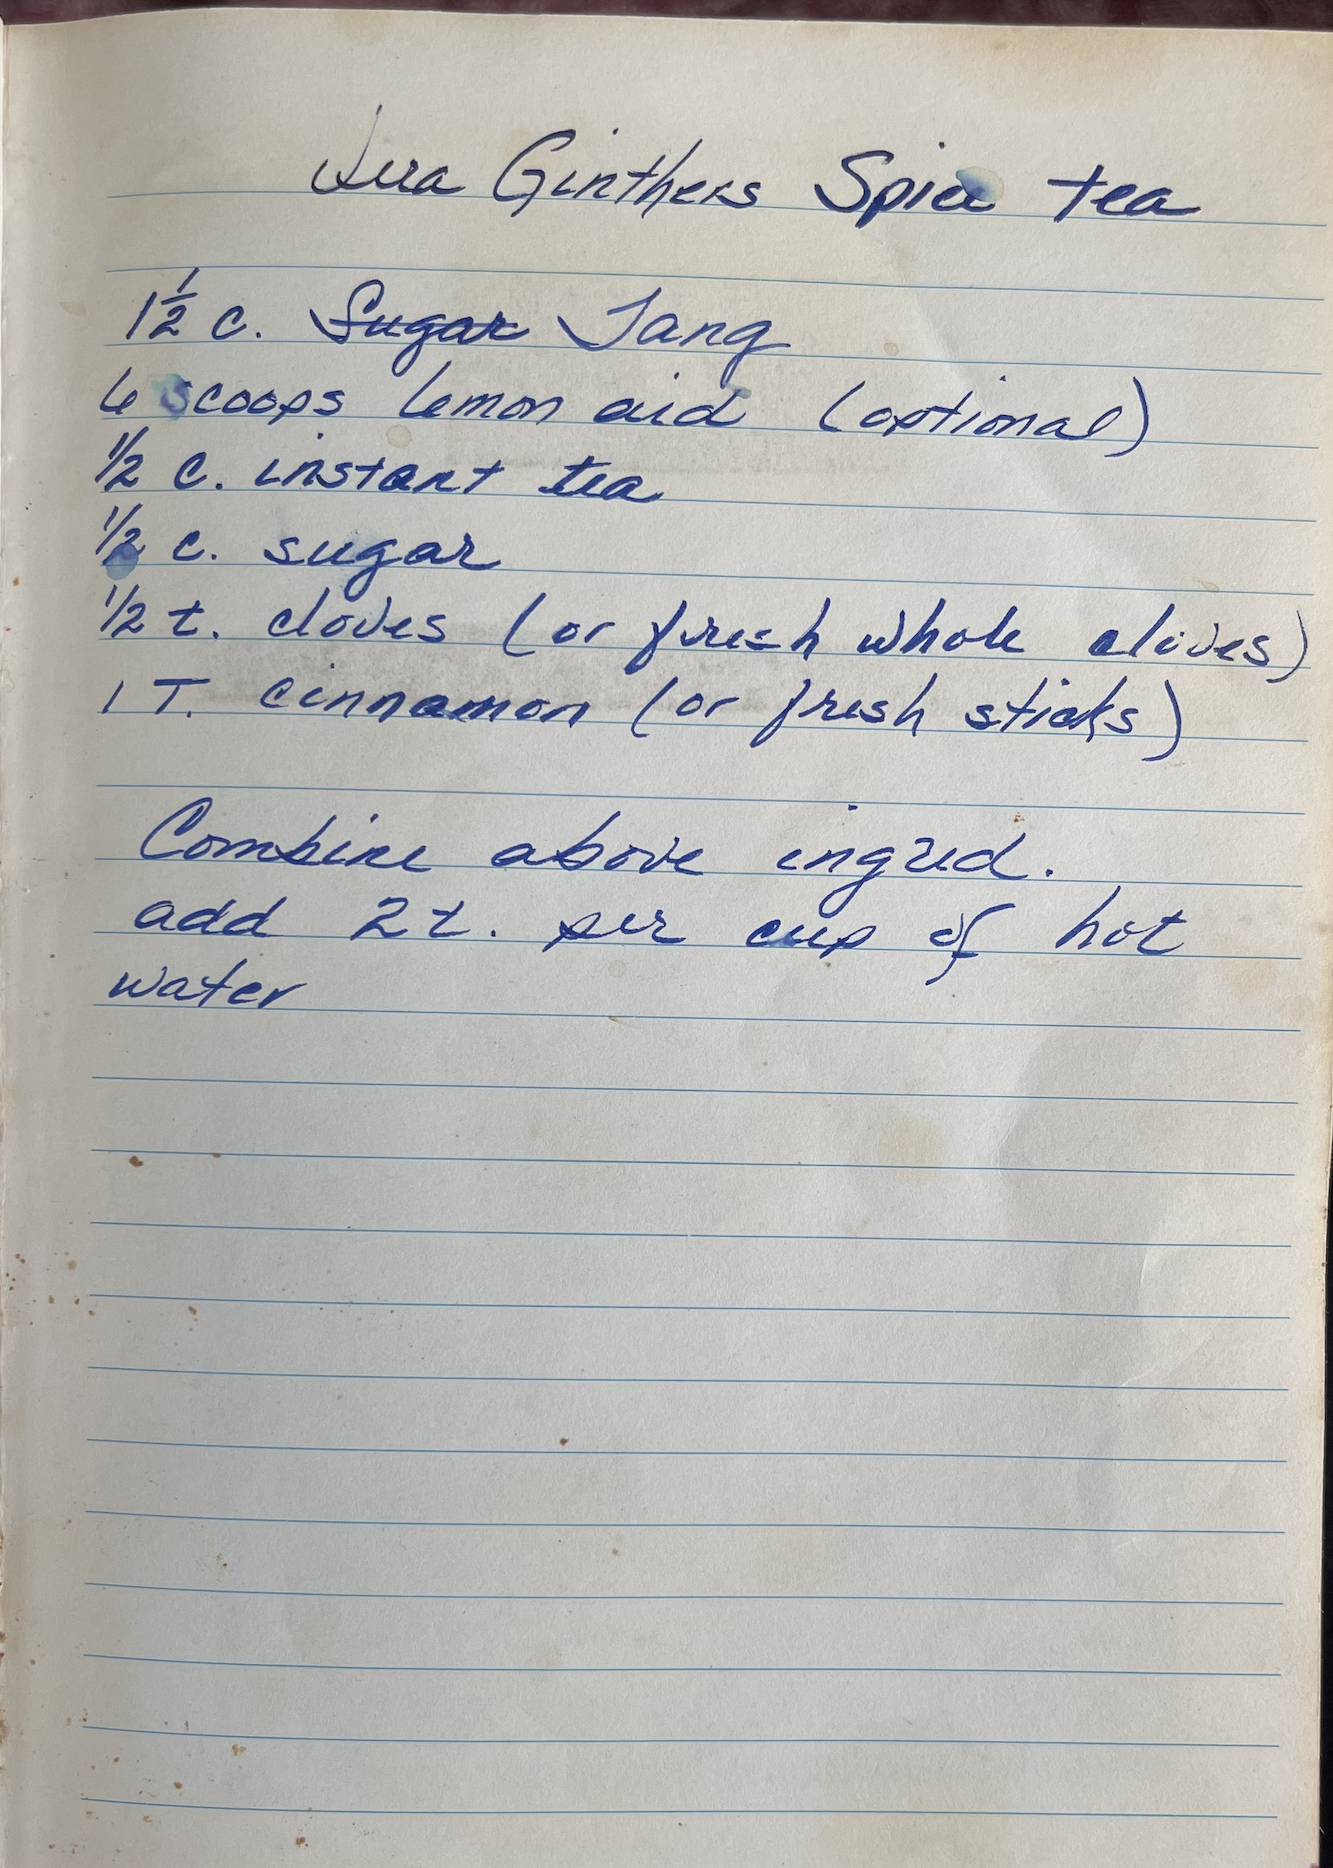 Ginthers Spice tea
1½ c. Sugar Tang
6 scoops lemon aid (optional)
1/2 c. instant tea
1/2 c. sugar
1/2 t. cloves (or fresh whole cloves)
1 T. cinnamon (or fresh sticks)
Combine above ingred.
add 2 t. per cup of hot
water